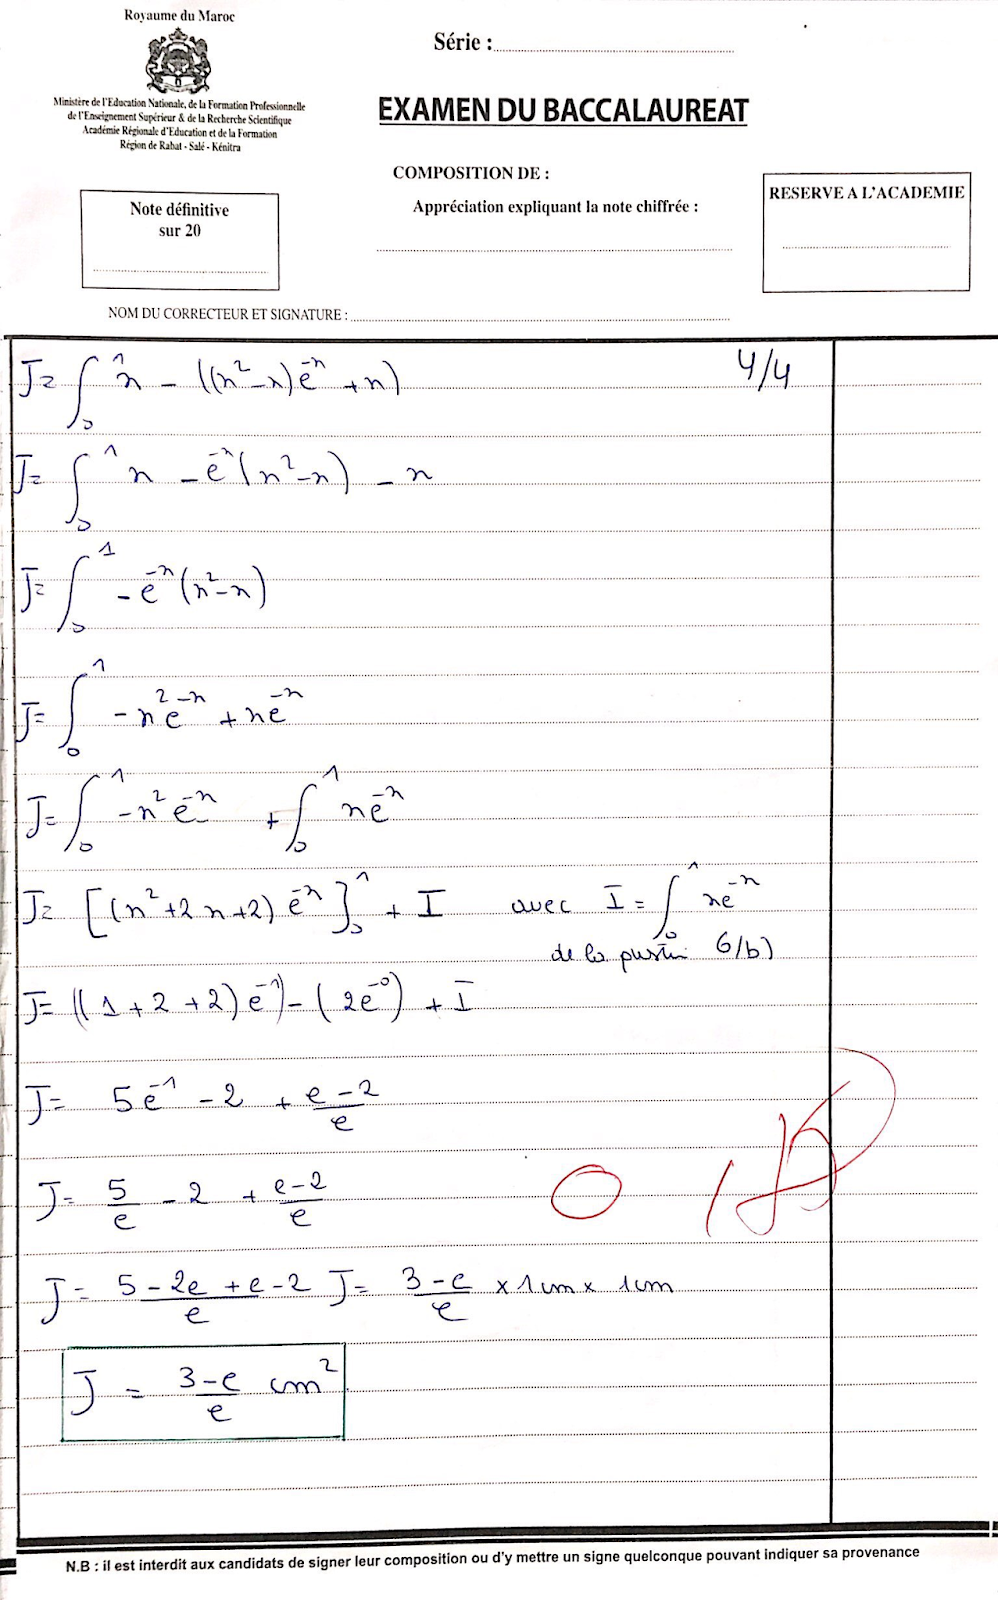 Royaume du Maroc
Ministère de l'Education Nationale, de la Formation Professionnelle
de l'Enseignement Supérieur & de la Recherche Scientifique
Académie Régionale d'Education et de la Formation
Région de Rabat - Salé - Kénitra
Série :
EXAMEN DU BACCALAUREAT
COMPOSITION DE :
Appréciation expliquant la note chiffrée :
RESERVE A L'ACADEMIE
Note définitive
sur 20
NOM DU CORRECTEUR ET SIGNATURE :
J= ∫₀¹ x - ((x²-x)e⁻ˣ +x) 4/4
J= ∫₀¹ x - e⁻ˣ(x²-x) - x
J= ∫₀¹ -e⁻ˣ(x²-x)
J= ∫₀¹ -x²e⁻ˣ +xe⁻ˣ
J= ∫₀¹ -x²e⁻ˣ + ∫₀¹ xe⁻ˣ
J= [(x²+2x+2)e⁻ˣ]₀¹ + I avec I = ∫₀¹ xe⁻ˣ
de la 6/b)
J= ((1+2+2)e⁻¹)-(2e⁻⁰) + I
J= 5e⁻¹ -2 + (e-2)/e
J= 5/e -2 + (e-2)/e
0
J= (5-2e+e-2)/e J= (3-e)/e ×1cm×1cm
J = (3-e)/e cm²
N.B : il est interdit aux candidats de signer leur composition ou d'y mettre un signe quelconque pouvant indiquer sa provenance